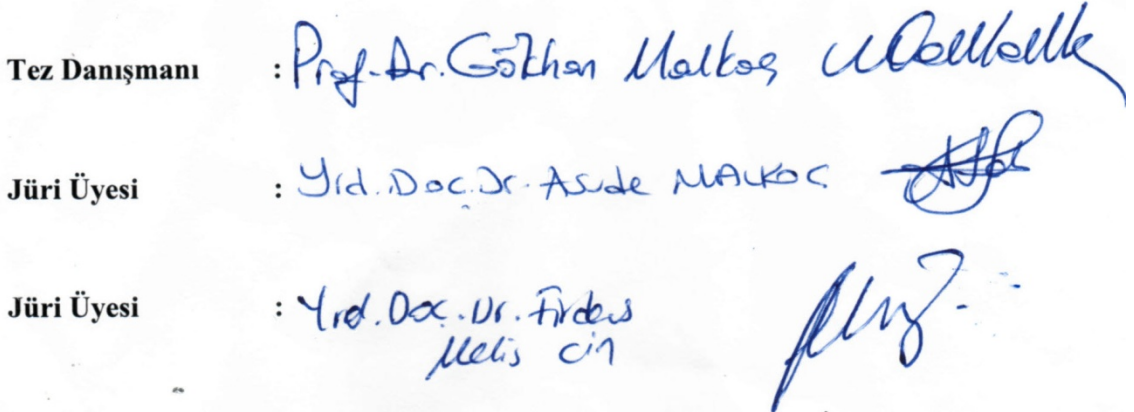 Tez Danışmanı : Prof. Dr. Gökhan Malkoç
Jüri Üyesi : Yrd. Doç. Dr. Asude MALKOÇ
Jüri Üyesi : Yrd. Doç. Dr. Firdevs
Melis Cin